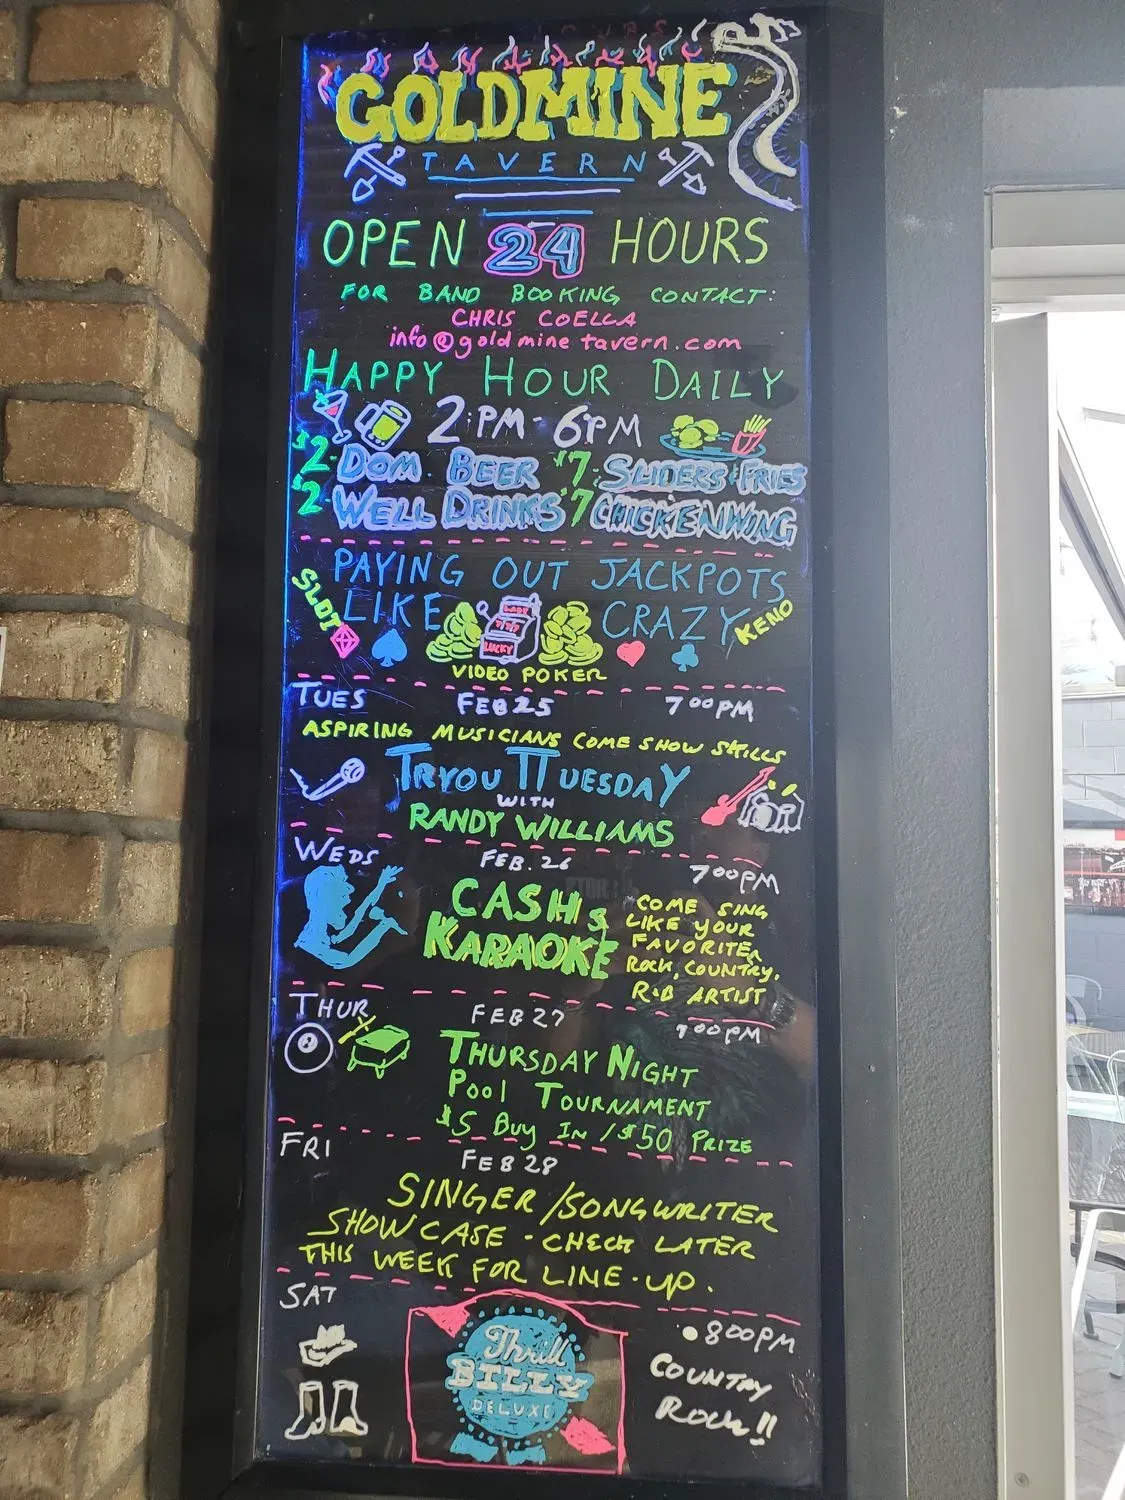 GOLDMINE
TAVERN
OPEN 24 HOURS
FOR BAND BOOKING CONTACT:
CHRIS COELLA
info@goldminetavern.com
HAPPY HOUR DAILY
2:PM-6PM
$2-DOM BEER $7-SLIDERS & FRIES
$2-WELL DRINKS $7 CHICKENWING
PAYING OUT JACKPOTS
SLOT LIKE CRAZY KENO
777
LUCKY
VIDEO POKER
TUES FEB 25 700PM
ASPIRING MUSICIANS COME SHOW SKILLS
TRYOUTTUESDAY
WITH
RANDY WILLIAMS
WEDS FEB. 26 700PM
CASH'S
KARAOKE
COME SING
LIKE YOUR
FAVORITE
ROCK, COUNTRY,
R&B ARTIST
THUR FEB 27 900PM
8
THURSDAY NIGHT
POOL TOURNAMENT
$5 BUY IN / $50 PRIZE
FRI FEB 28
SINGER/SONGWRITER
SHOWCASE - CHECK LATER
THIS WEEK FOR LINE-UP.
SAT
800PM
Thrill
BILLY
DELUXE
COUNTRY
ROCK!!